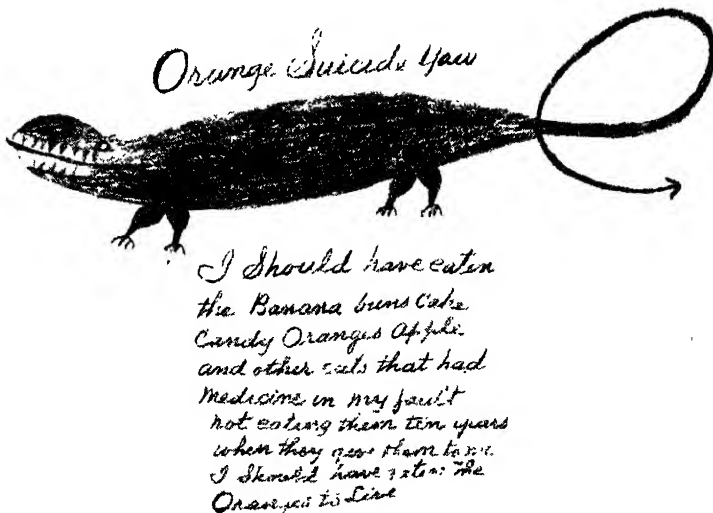 Orange Suicide Yaw
I Should have eaten
the Banana buns Cake
Candy Oranges Apple
and other eats that had
Medicine in my fault
not eating them ten years
when they gave them to me
I Should have eten The
Oranges to Live